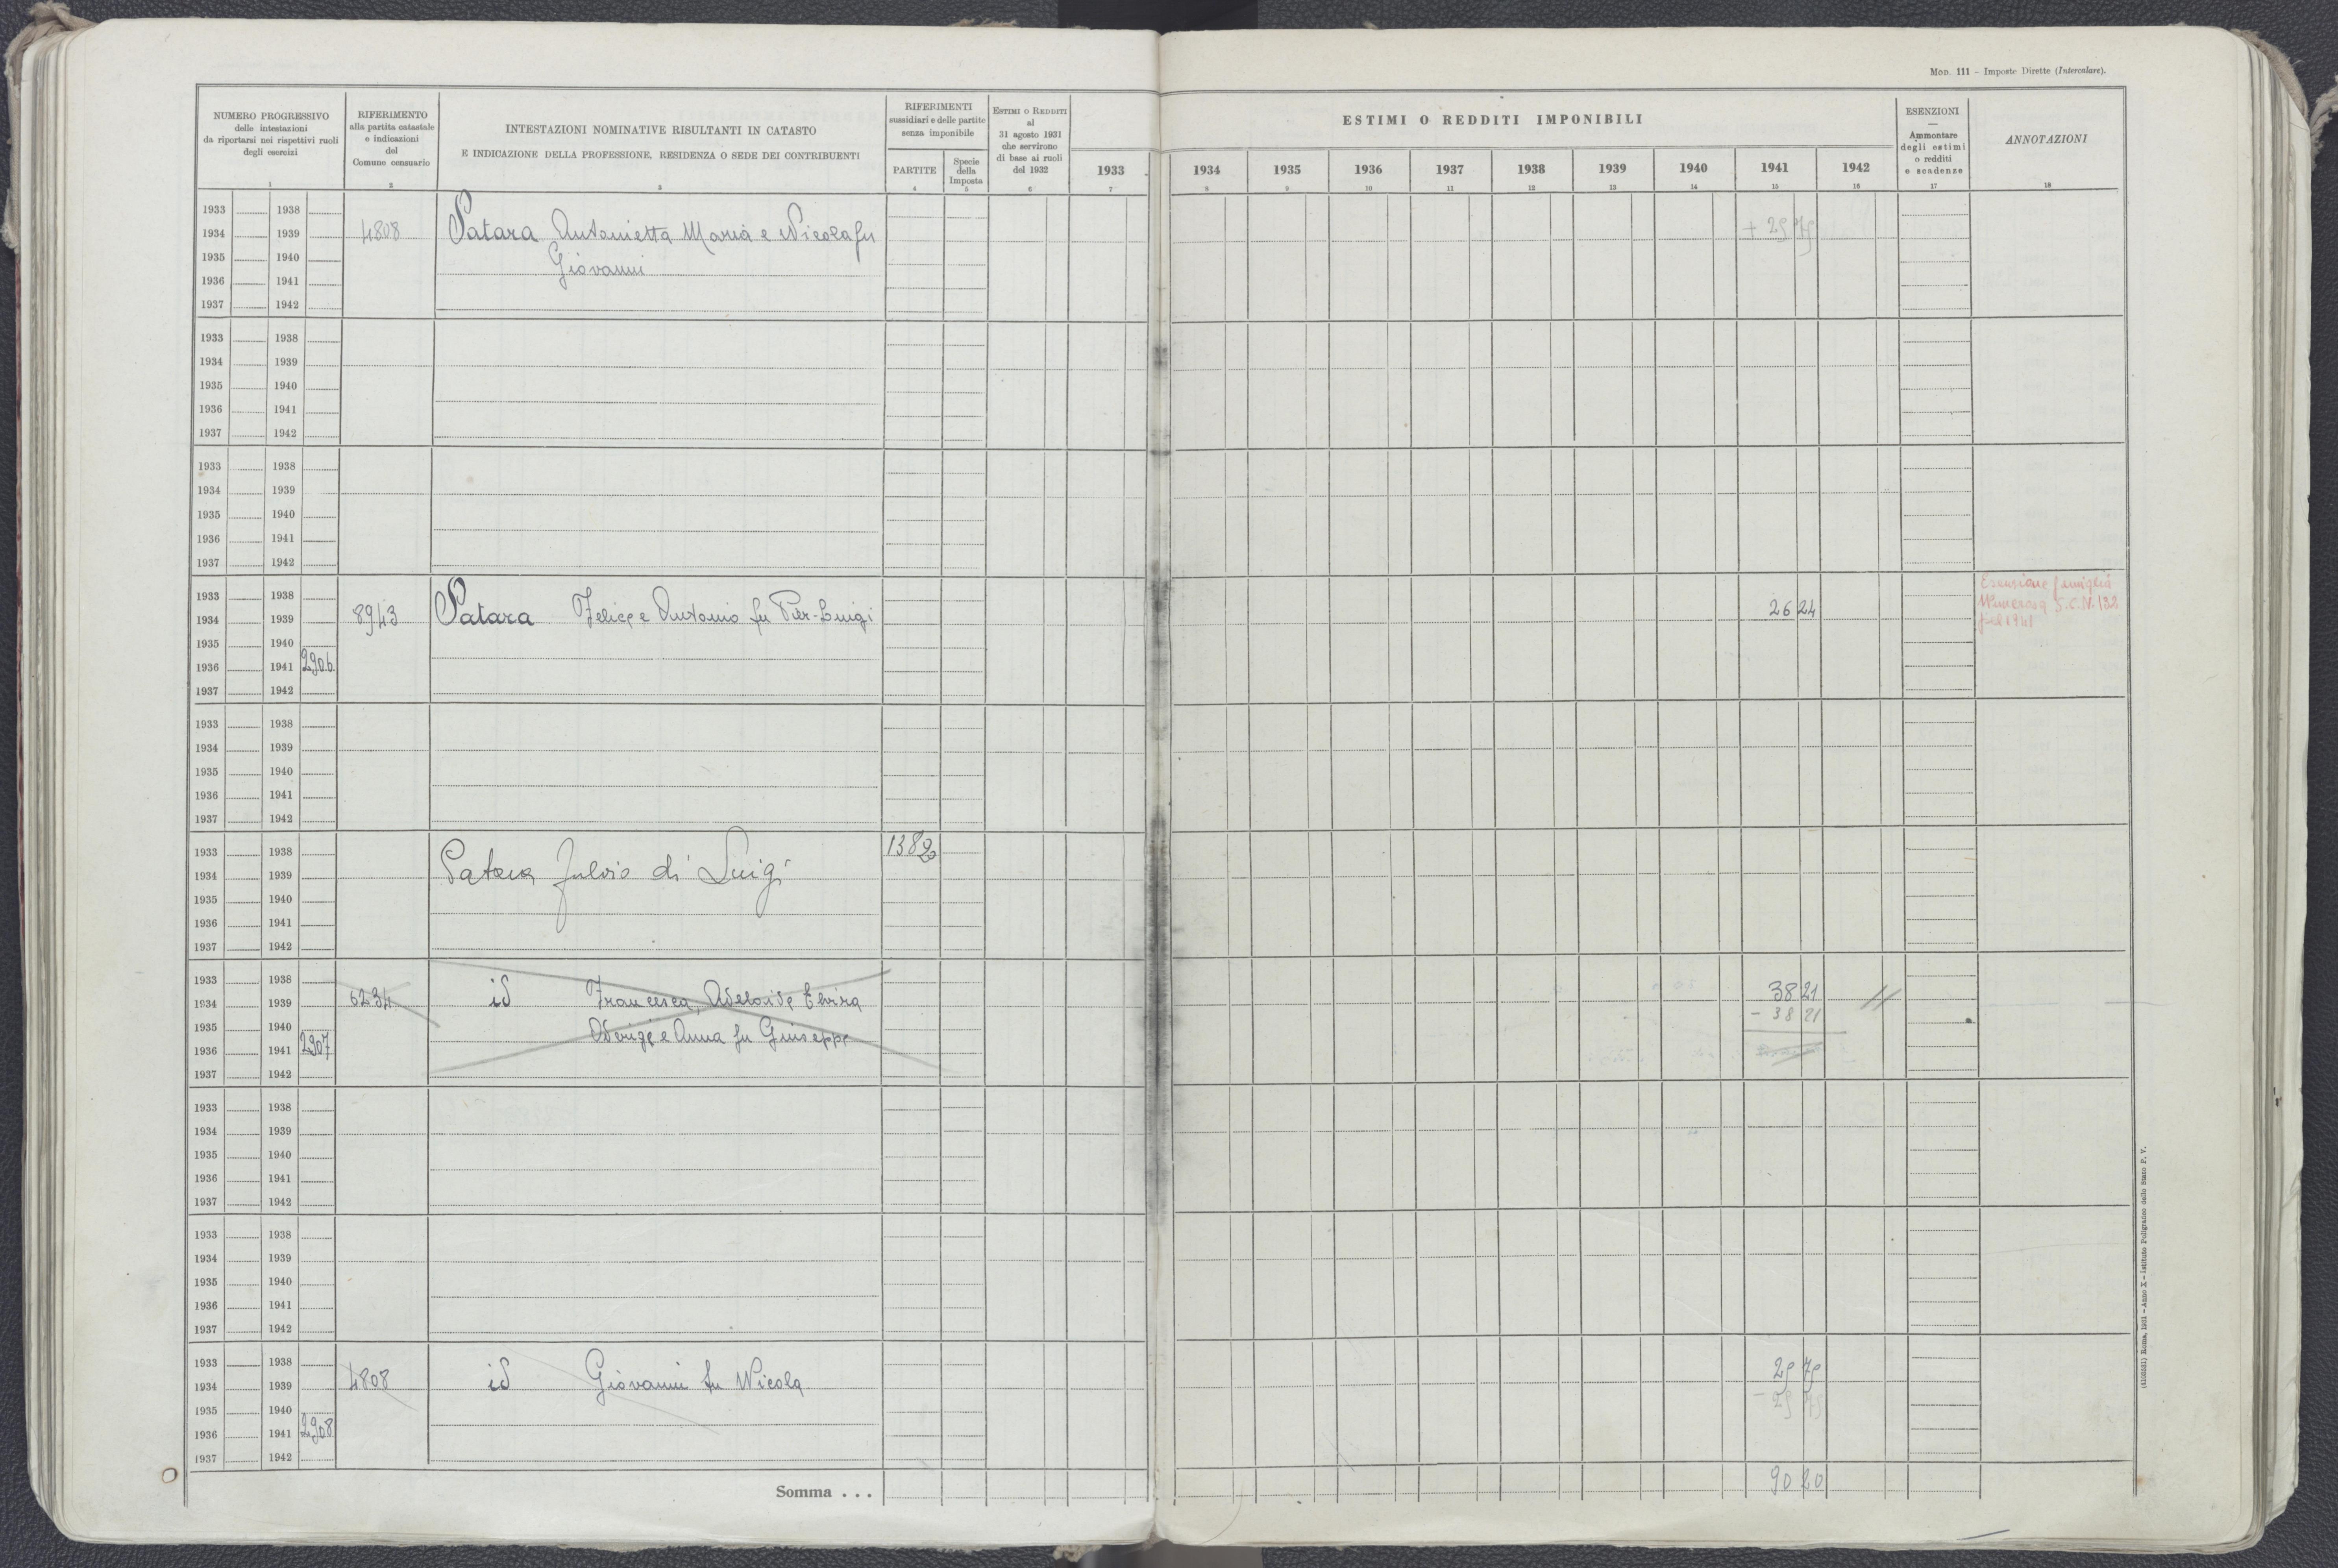 MOD. 111 – Imposte Dirette (Intercalare).
NUMERO PROGRESSIVO
delle intestazioni
da riportarsi nei rispettivi ruoli
degli esercizi
1
RIFERIMENTO
alla partita catastale
e indicazioni
del
Comune censuario
2
INTESTAZIONI NOMINATIVE RISULTANTI IN CATASTO
E INDICAZIONE DELLA PROFESSIONE, RESIDENZA O SEDE DEI CONTRIBUENTI
3
RIFERIMENTI
sussidiari e delle partite
senza imponibile
PARTITE
4
Specie
della
Imposta
5
ESTIMI O REDDITI
al
31 agosto 1931
che servirono
di base ai ruoli
del 1932
6
ESTIMI O REDDITI IMPONIBILI
1933 1934 1935 1936 1937 1938 1939 1940 1941 1942
7 8 9 10 11 12 13 14 15 16
ESENZIONI
—
Ammontare
degli estimi
o redditi
e scadenze
17
ANNOTAZIONI
18
1933 1938
1934 1939 4808 Patara Antonietta Maria e Nicola fu + 25 75
1935 1940 Giovanni
1936 1941
1937 1942
1933 1938
1934 1939
1935 1940
1936 1941
1937 1942
1933 1938
1934 1939
1935 1940
1936 1941
1937 1942
1933 1938 Esenzione famiglia
1934 1939 8943 Patara Felice e Antonio fu Pier-Luigi 26 24 Numerosa S.C.N. 132
1935 1940 pel 1941
1936 1941 2906
1937 1942
1933 1938
1934 1939
1935 1940
1936 1941
1937 1942
1933 1938 1382
1934 1939 Patara Fulvio di Luigi
1935 1940
1936 1941
1937 1942
1933 1938
1934 1939 6234 id Francesca, Adelaide Elvira 38 21
1935 1940 – 38 21
1936 1941 2907 e Anna fu Giuseppe
1937 1942
1933 1938
1934 1939
1935 1940
1936 1941
1937 1942
1933 1938
1934 1939
1935 1940
1936 1941
1937 1942
1933 1938 25 75
1934 1939 4808 id Giovanni fu Nicola – 25 75
1935 1940
1936 1941 2908
1937 1942
Somma . . . 90 20
(4205331) Roma, 1931 – Anno X – Istituto Poligrafico dello Stato P. V.